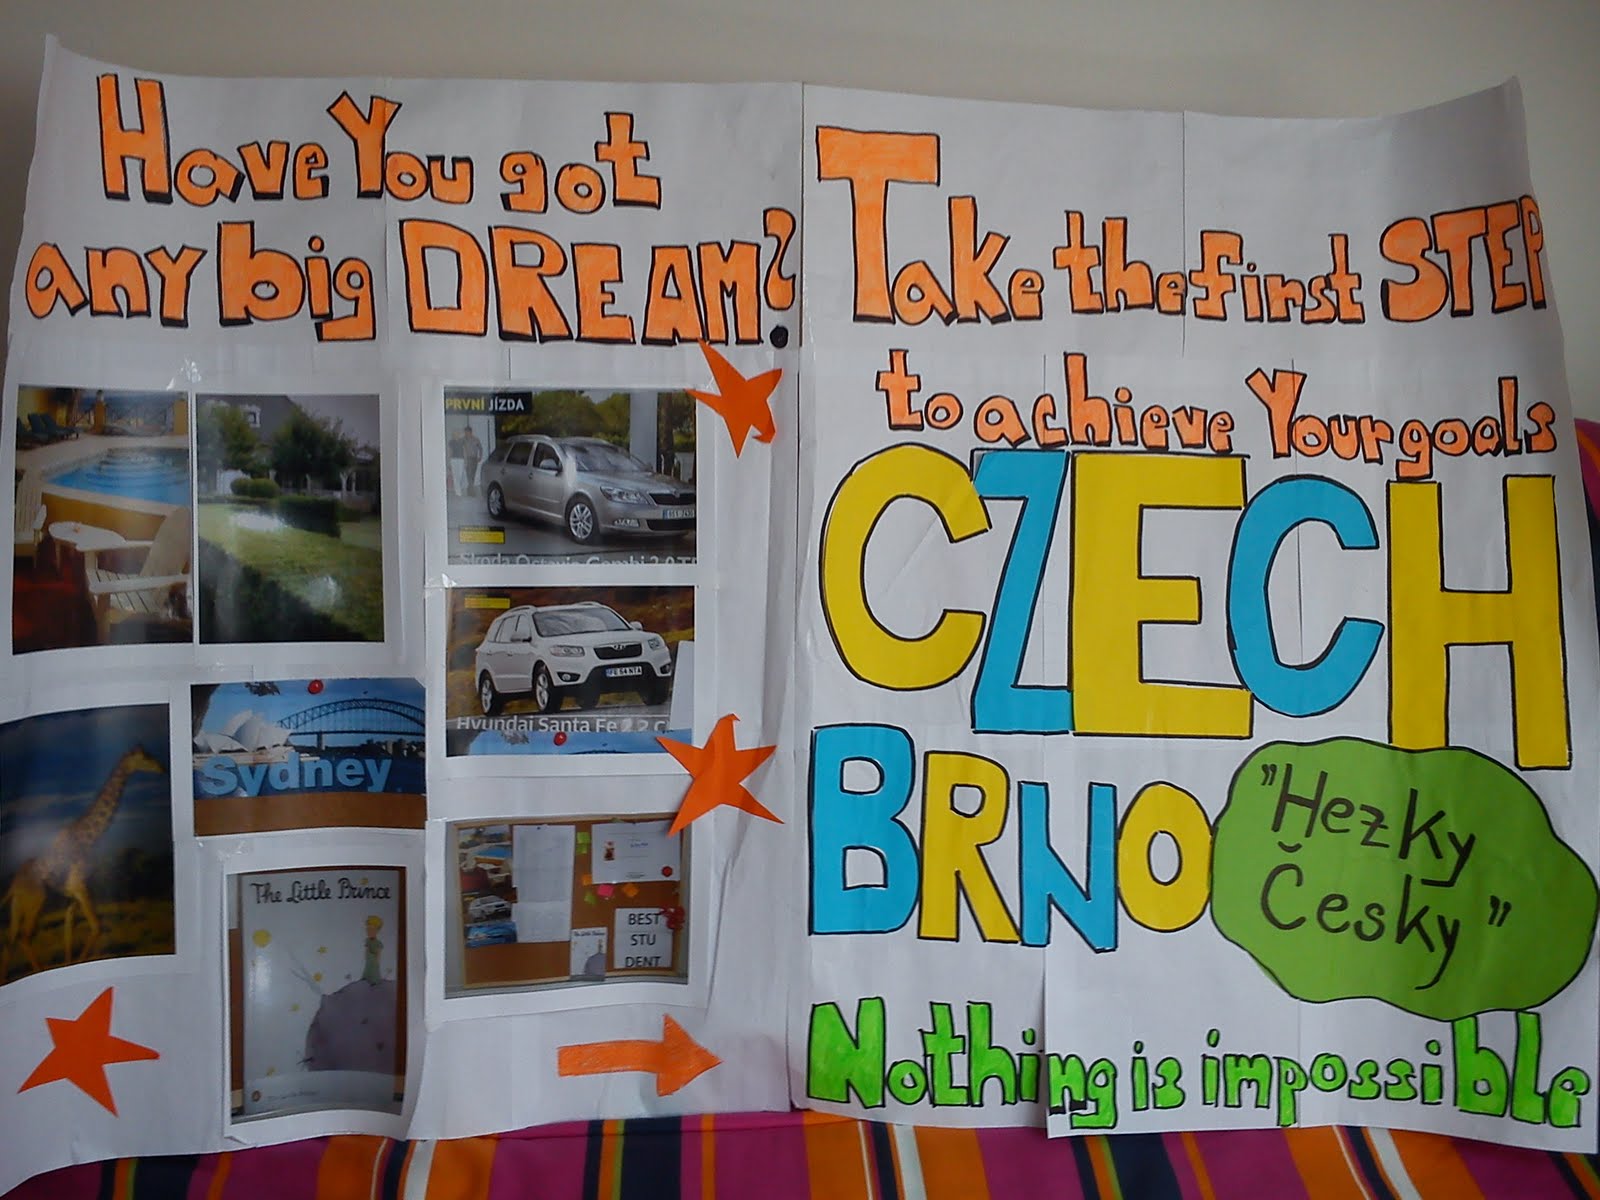 Have You got
any big DREAM?
PRVNÍ JÍZDA
Skoda Octavia Combi 2.0 T
Hyundai Santa Fe 2.2 C
Sydney
The Little Prince
BEST
STU
DENT
Take the first STEP
to achieve Your goals
CZECH
BRNO
"Hezky
Česky"
Nothing is impossible